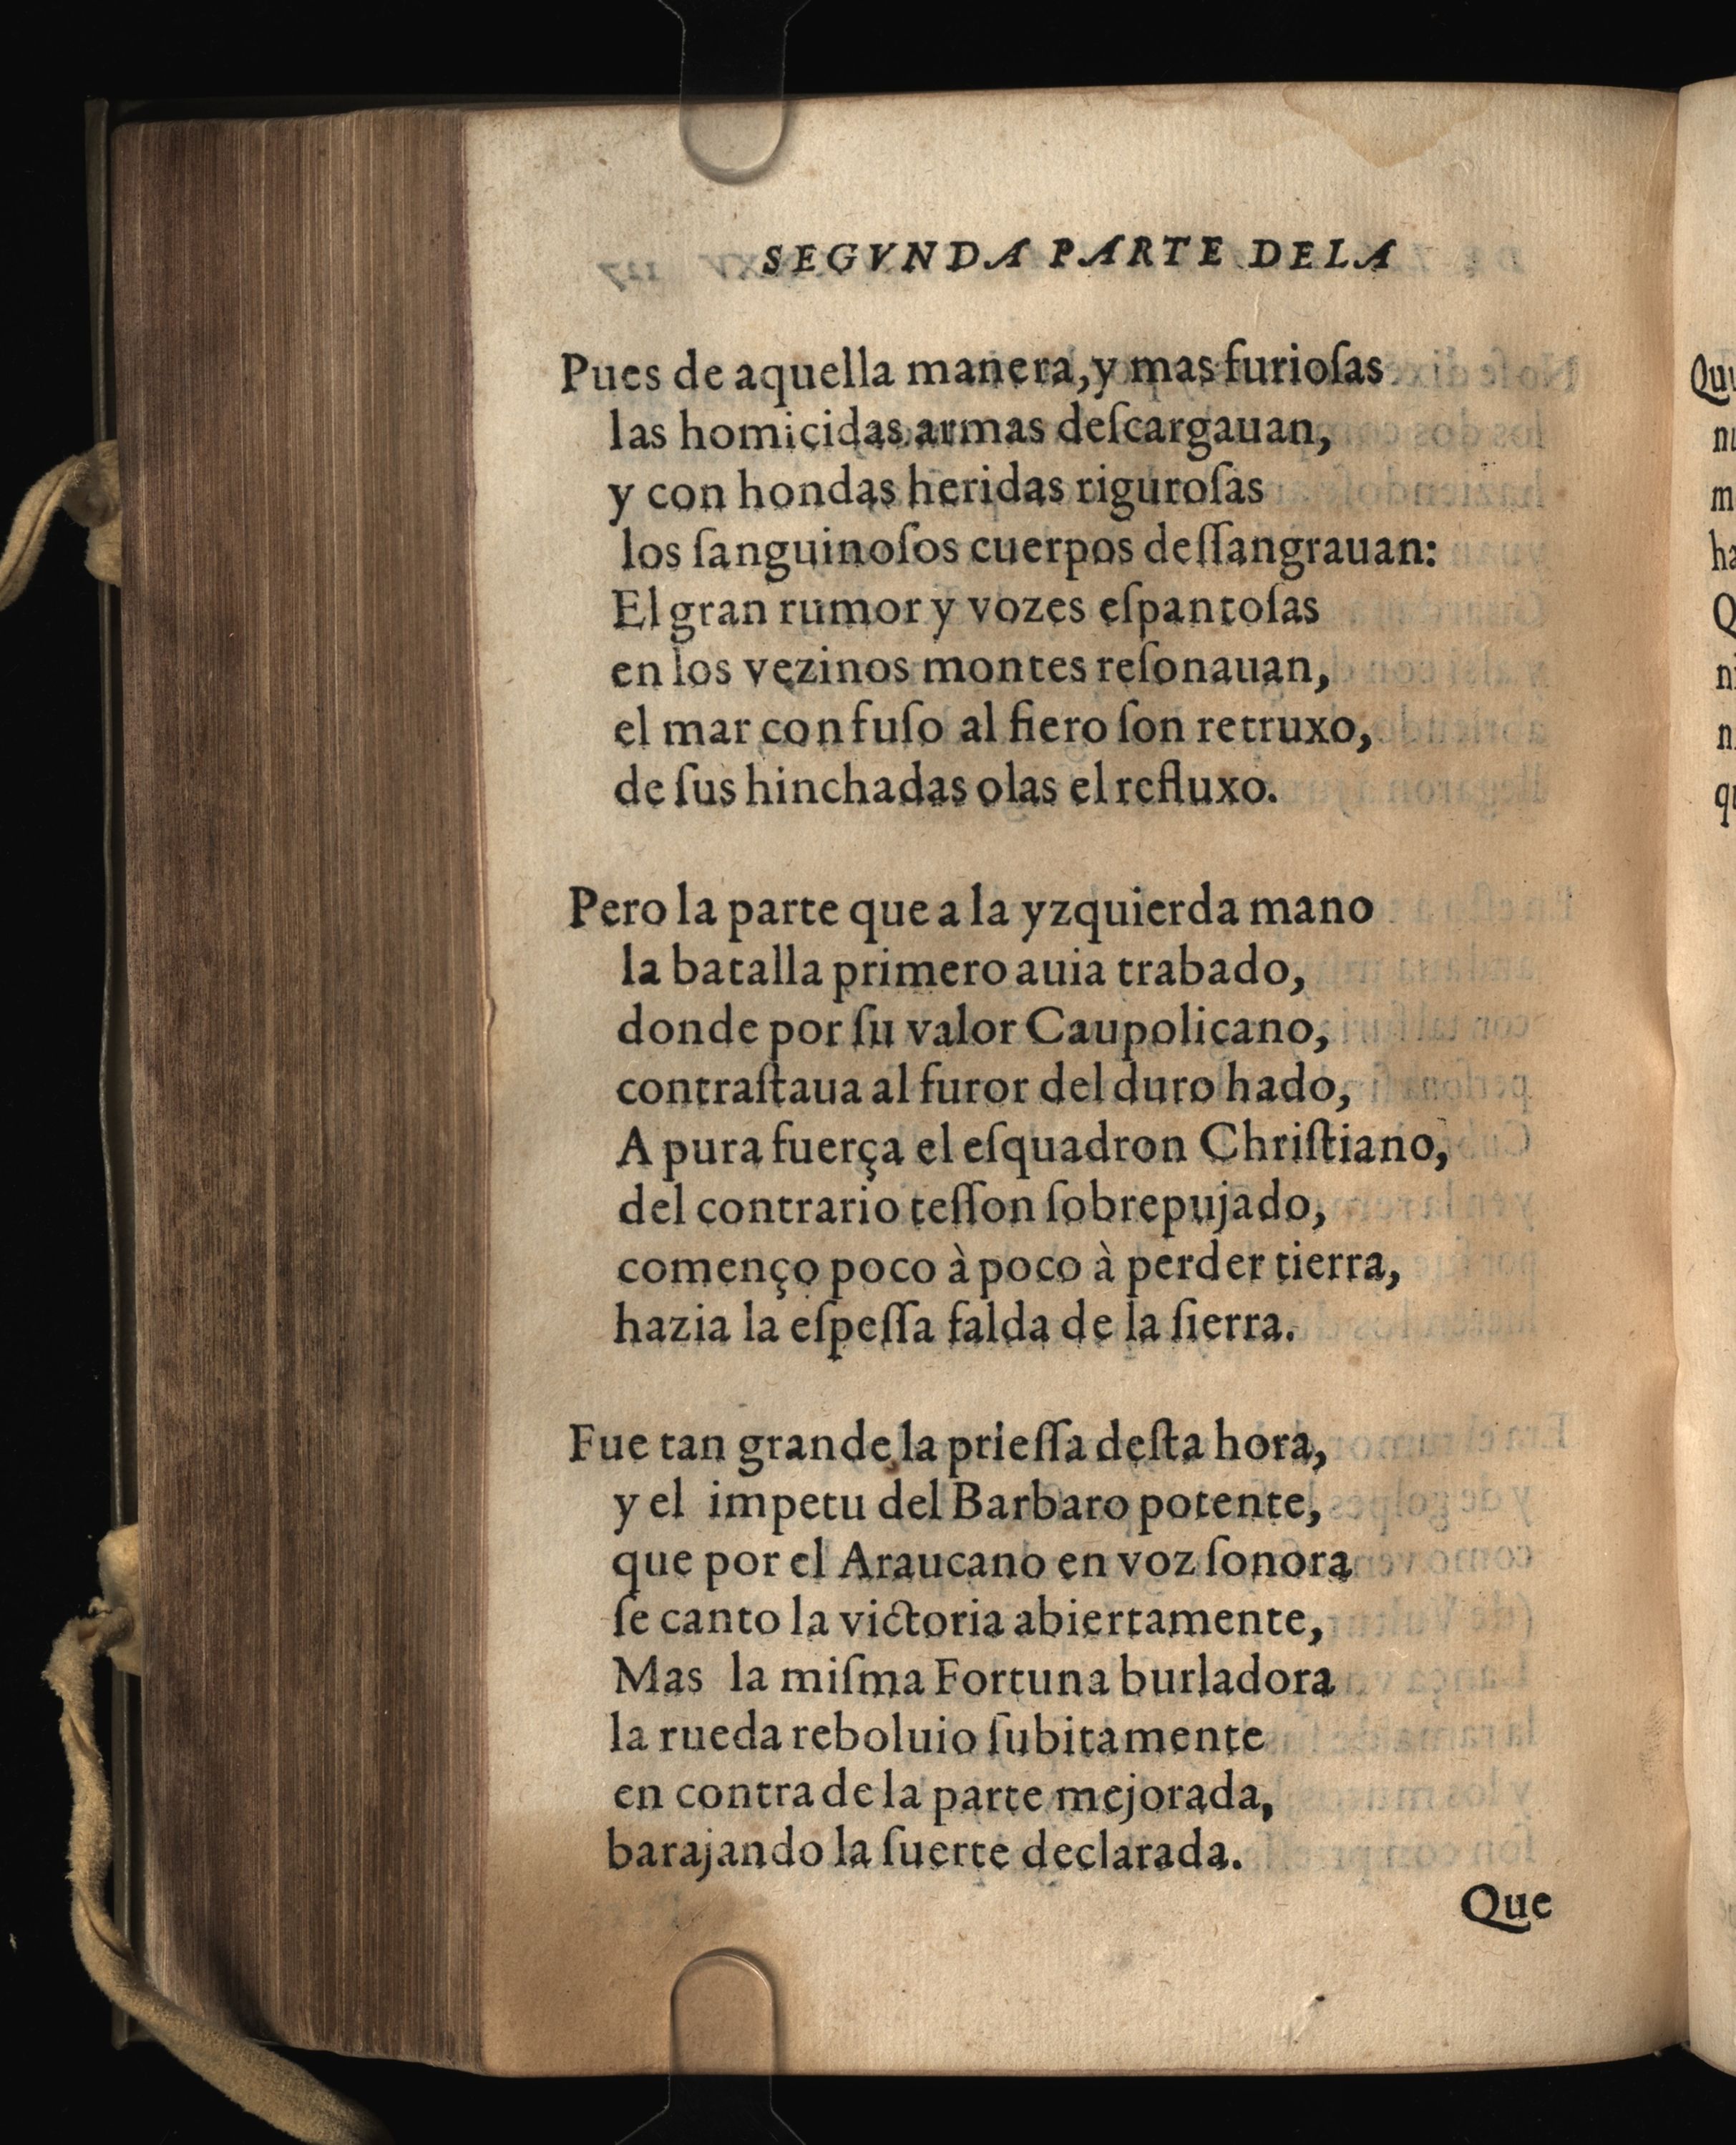 SEGVNDA PARTE DELA
Pues de aquella manera,y mas furioſas
las homicidas armas deſcargauan,
y con hondas heridas riguroſas
los ſanguinoſos cuerpos deſſangrauan:
El gran rumor y vozes eſpantoſas
en los vezinos montes reſonauan,
el mar confuſo al fiero ſon retruxo,
de ſus hinchadas olas el refluxo.
Pero la parte que a la yzquierda mano
la batalla primero auia trabado,
donde por ſu valor Caupolicano,
contraſtaua al furor del duro hado,
A pura fuerça el eſquadron Chriſtiano,
del contrario teſſon ſobrepujado,
començo poco à poco à perder tierra,
hazia la eſpeſſa falda de la ſierra.
Fue tan grande la prieſſa deſta hora,
y el impetu del Barbaro potente,
que por el Araucano en voz ſonora
ſe canto la victoria abiertamente,
Mas la miſma Fortuna burladora
la rueda reboluio ſubitamente
en contra de la parte mejorada,
barajando la ſuerte declarada.
Que